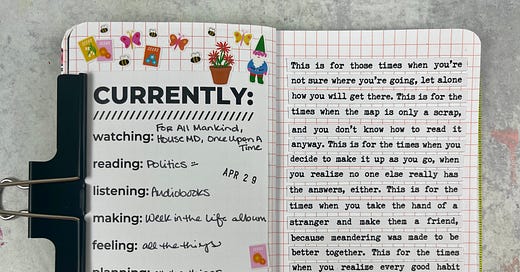 CURRENTLY:
watching: For All Mankind,
House MD, Once Upon A
Time
reading: Politics =
APR 29
listening: Audiobooks
making: Week in the Life album
feeling: all the things
planning:
This is for those times when you're
not sure where you're going, let alone
how you will get there. This is for the
times when the map is only a scrap,
and you don't know how to read it
anyway. This is for the times when you
decide to make it up as you go, when
you realize no one else really has
the answers, either. This is for the
times when you take the hand of a
stranger and make them a friend,
because meandering was made to be
better together. This is for the times
when you realize every good habit